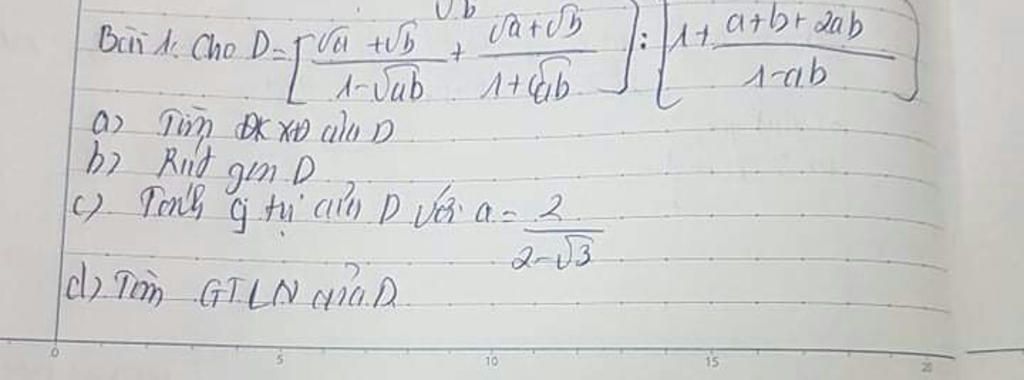 √b
Bài 1: Cho D = [(√a + √b)/(1-√ab) + (√a+√b)/(1+√ab)] : [1 + (a+b+2ab)/(1-ab)]
a) Tìm ĐKXĐ của D
b) Rút gọn D
c) Tính g trị của D với a = 2/(2-√3)
d) Tìm GTLN của D
0 5 10 15 20